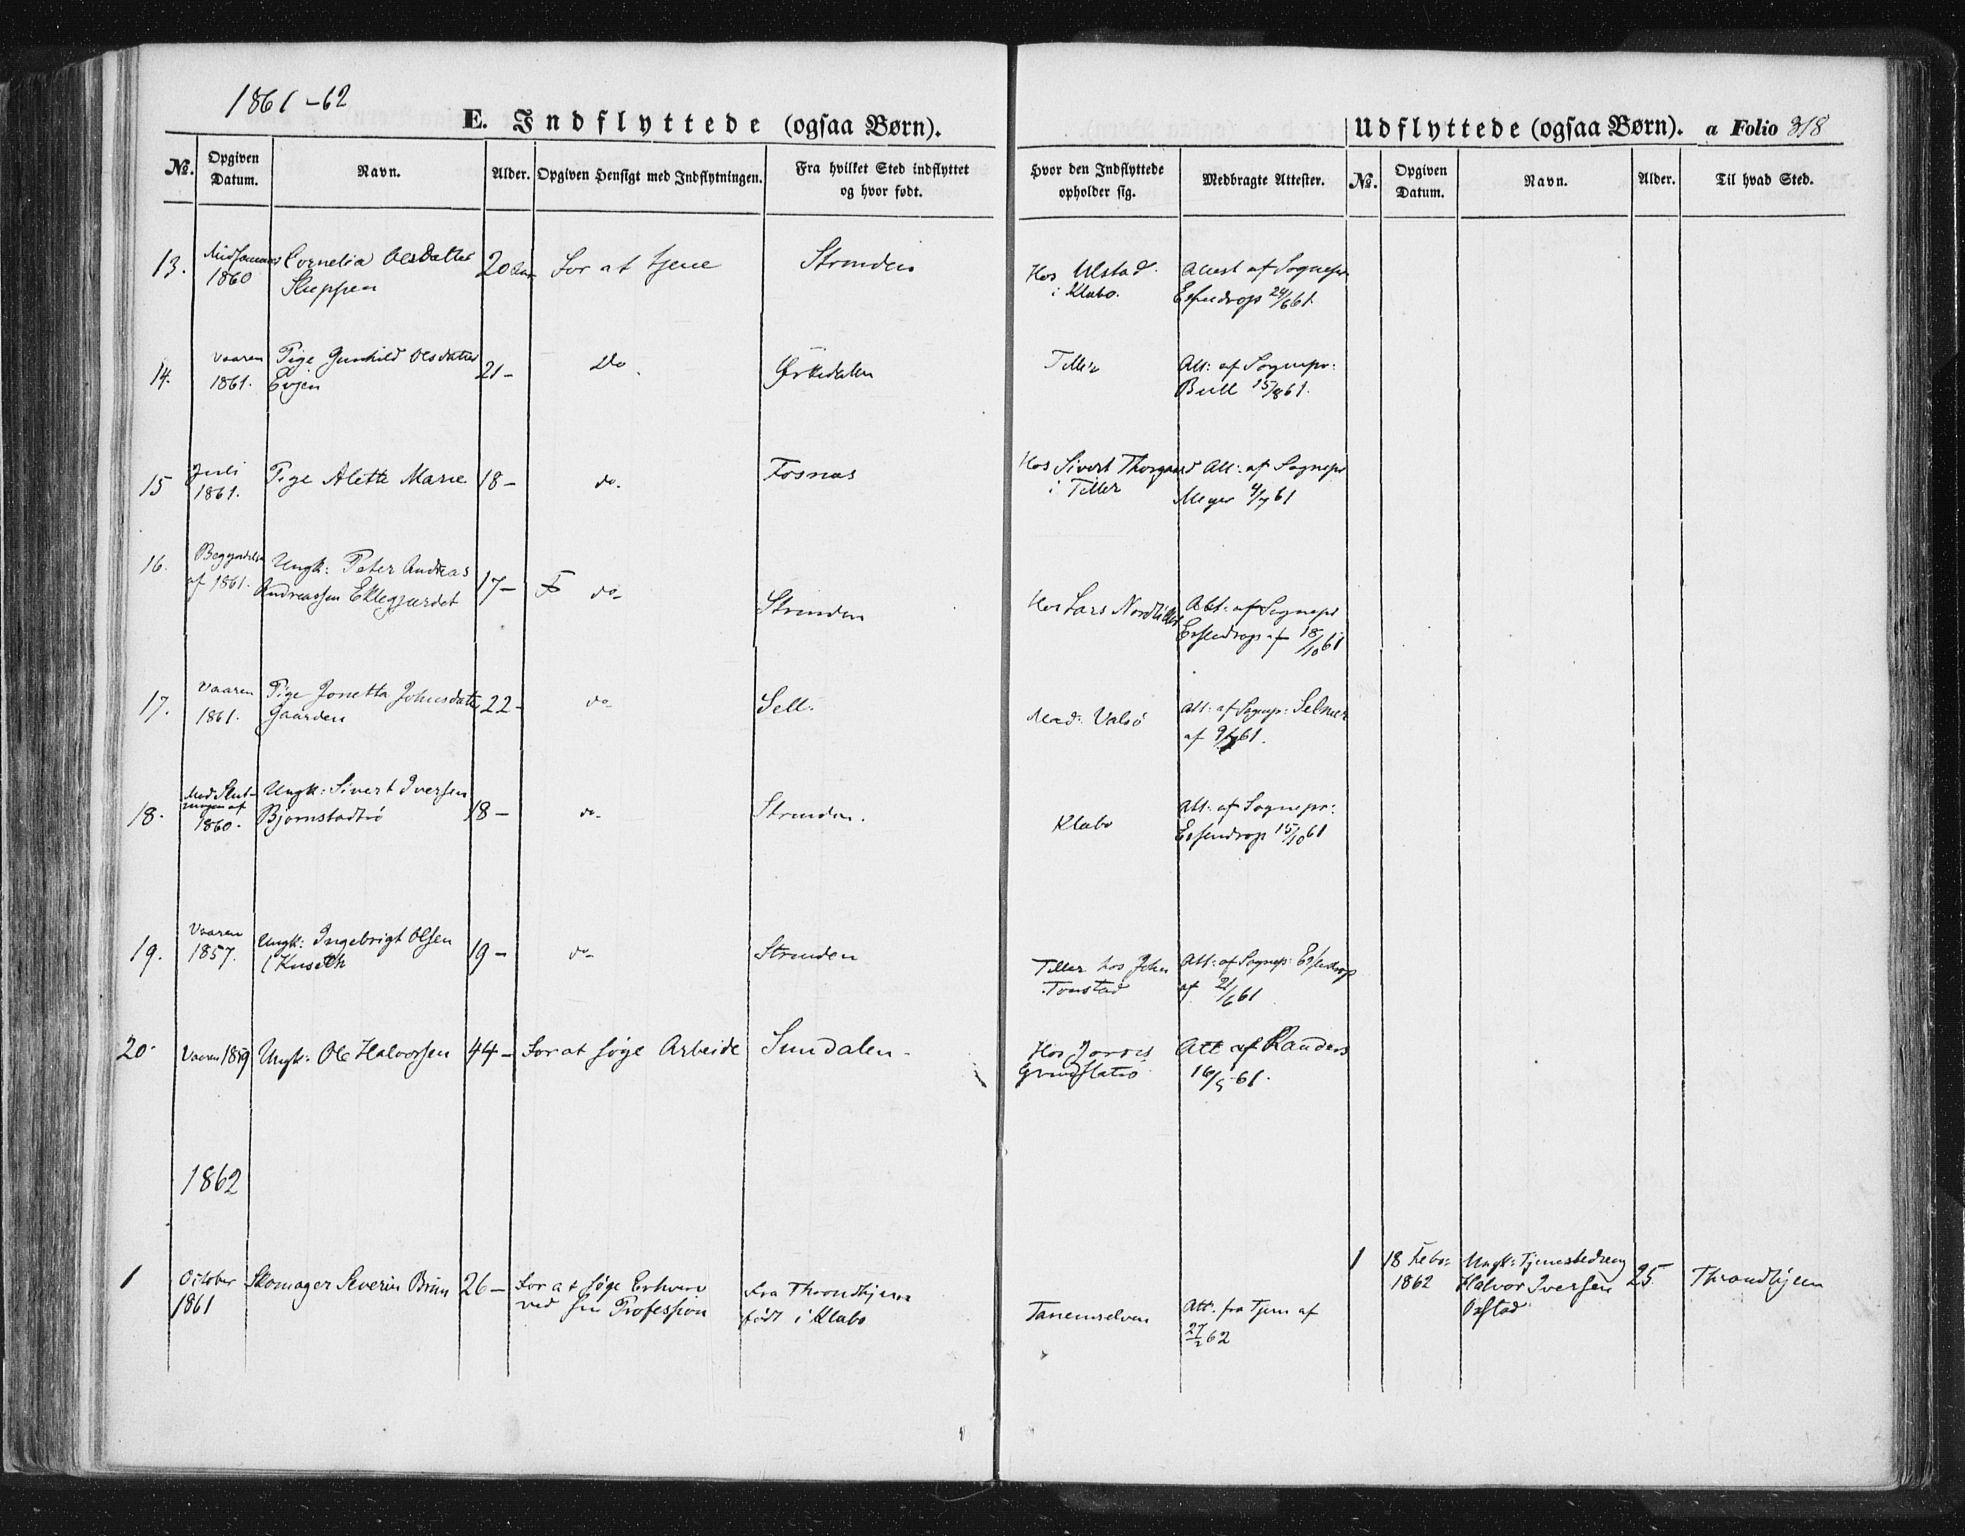 1861-62
E. Indflyttede (ogsaa Børn).
Udflyttede (ogsaa Børn). a Folio 318
No. Opgiven Datum. Navn. Alder. Opgiven Hensigt med Indflytningen. Fra hvilket Sted indflyttet og hvor født. Hvor den Indflyttede opholder sig. Medbragte Attester. No. Opgiven Datum. Navn. Alder. Til hvad Sted.
13. Midsommer Cornelia Olsdatter 20 For at tjene Strinden Hos Ulstad Attest af Sognepr
1860 i Klæbo. 24/6 61.
14. Vaaren Pige Gunhild Olsdatter 21- Do Ørkedalen Tiller Att: af Sognepr:
1861. Evjen Bull 15/8 61.
15 Juli Pige Aletta Marie 18- do. Fosnæs Hos Sivert Thorgaard Att: af Sognepr
1861. i Tiller Meyer 4/7 61
16. Begyndelsen Ungk: Peter Andreas 17- do- Strinden Hos Lars Nordtiller Att: af Sognepr
af 1861. Andreassen Eklegjærdet af 18/10 61
17. Vaaren Pige Jonetta Johnsdatter 22- do- Selb. Mad: Valsö Att: af Sognep: Selmer
1861. Gaarden af
18. Med Slut- Ungk: Sivert Iversen 18- do- Strinden. Klæbo Att: af Sognepr:
ningen af Bjørnstadtrø 15/10 61
1860.
19. Vaaren Ungk: Ingebrigt Olsen 19- do- Strinden Tiller hos John Att: af Sognep:
1857. Tonstad af 21/6 61
20. Vaaren 1859 Ungk: Ole Halvorsen 44- For at søge Arbeide Sundalen- Hos Att af Randers
16/5 61.
1862
1 October Skomager Severin Brun 26- For at søge Erhverv Fra Throndhjem Tanemselven Att: fra Tjem af
1861 ved sin Profession født i Klæbo 27/2 62
1 18 Febr: Ungk: Tjenestedreng 25 Throndhjem
1862 Halvor Iversen